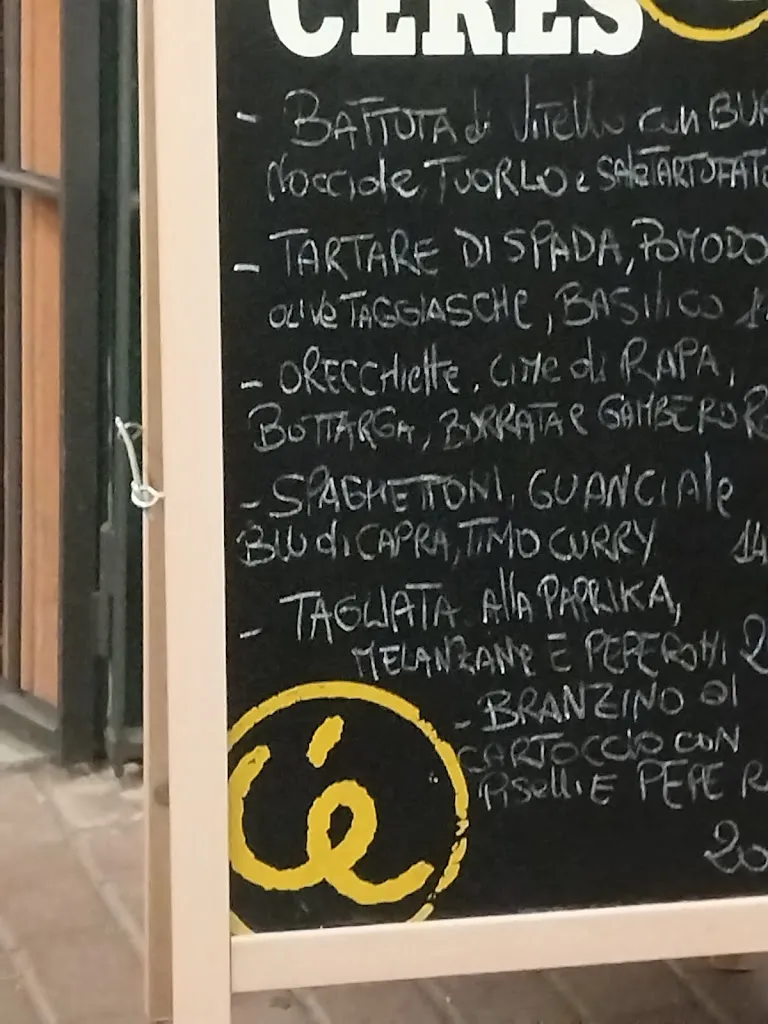 CERES
- BATTUTA di Vitello con BUR
Nocciole, TUORLO e SALE TARTUFATO
- TARTARE DI SPADA, POMODO
OLIVE TAGGIASCHE, BASILICO 1
- ORECCHIETTE, CIME di RAPA,
BOTTARGA, BURRATA e GAMBERO R
- SPAGHETTONI, GUANCIALE
BLU di CAPRA, TIMO CURRY 14
- TAGLIATA AllA PAPRIKA,
MELANZANE E PEPERONI 2
- BRANZINO al
CARTOCCIO CON
PISELLI E PEPE R
20
c'è